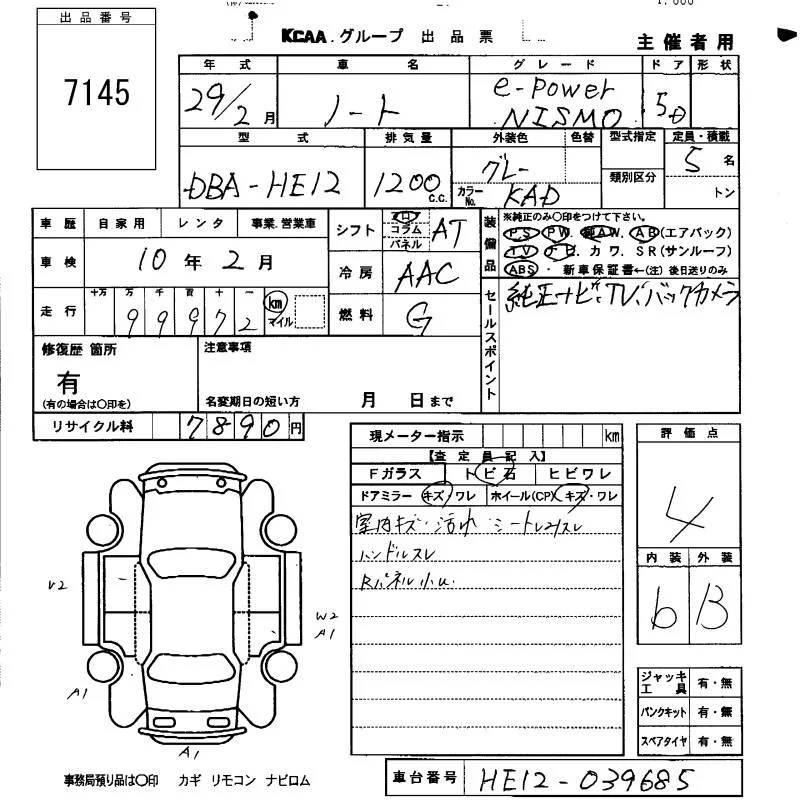 出品番号
7145
KCAA.グループ 出品票
主催者用
年式 車名 グレード ドア 形状
29/2月 ノート e-Power NISMO 5D
型式 排気量 外装色 色替 型式指定 定員・積載
類別区分
DBA-HE12 1200 c.c. グレー 5名
カラーNo. KAD トン
車歴 自家用 レンタ 事業.営業車
シフト フロア コラム パネル AT
装備品
※純正のみ〇印をつけて下さい。
PS PW. 純AW. AB(エアバック)
TV ナビ. カワ. SR(サンルーフ)
ABS ・ 新車保証書←(注)後日送りのみ
車検 10年2月
冷房 AAC
走行 十万 万 千 百 十 一
99972 km マイル
燃料 G
セールスポイント
純正ナビ.TV.バックカメラ
修復歴 箇所
有
(有の場合は〇印を)
注意事項
名変期日の短い方 月 日まで
リサイクル料 7890円
現メーター指示 km
【査定員記入】
Fガラス トビ石 ヒビワレ
ドアミラー キズ/ワレ ホイール(CP) キズ・ワレ
室内キズ・汚れ シート
ハンドルスレ
Rパネル小U.
評価点
4
内装 外装
b B
V2
W2
A1
A1
A1
ジャッキ工具 有・無
パンクキット 有・無
スペアタイヤ 有・無
事務局預り品は〇印 カギ リモコン ナビロム
車台番号 HE12-039685